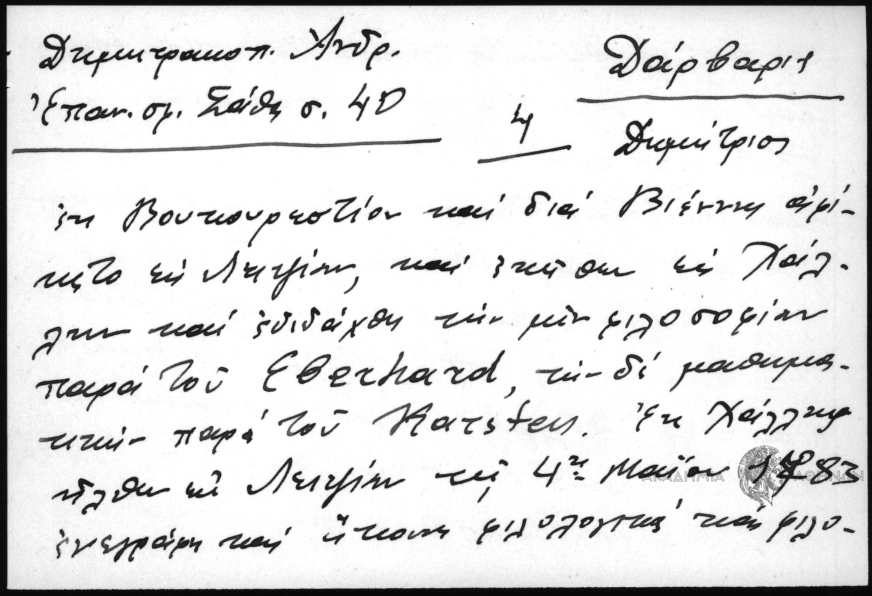 Δημητρακοπ. Ἀνδρ.
Ἐπαν. σφ. Σάθα σ. 40
Δάρβαρις
4
Δημήτριος
ἐκ Βουκουρεστίου καί διά Βιέννης ἀφί-
κετο εἰς Λειψίαν, καί ἐκεῖθεν εἰς Χάλ-
λην καί ἐδιδάχθη τήν μέν φιλοσοφίαν
παρά τοῦ Eberhard, τήν δέ μαθημα-
τικήν παρά τοῦ Karsten. Ἐκ Χάλλης
ἦλθεν εἰς Λειψίαν τῇ 4ῃ Μαΐου 1783
ἐνεγράφη καί ἤκουσε φιλολογικά καί φιλο-
ΑΚΑΔΗΜΙΑ ΑΘΗΝΩΝ